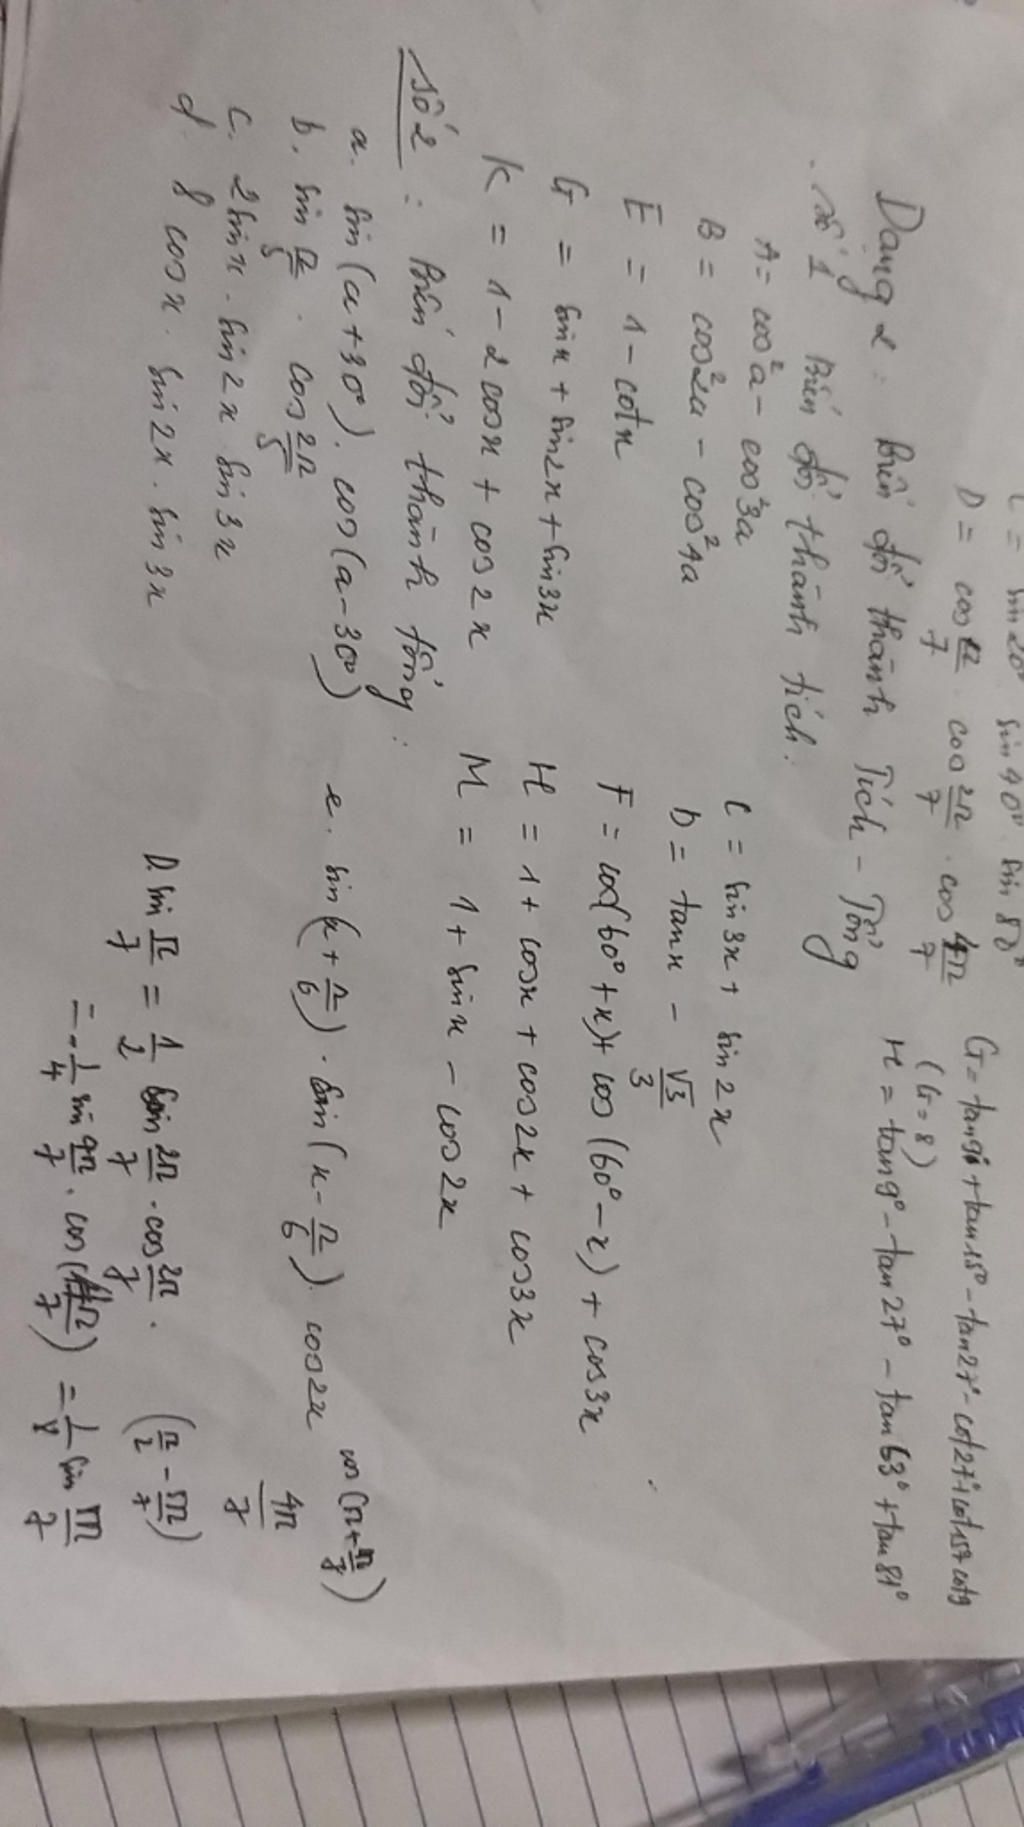 sin20° sin40° sin80°
D = cos π/7 . cos 2π/7 . cos 4π/7
G = tan9° + tan15° - tan27° - cot27° + cot15° + cot9
(G = 8)
H = tan9° - tan27° - tan63° + tan81°
Dạng 2: Biến đổi thành Tích - Tổng
Số 1 Biến đổi thành tích:
A = cos²a - cos²3a
C = sin3x + sin2x
B = cos²2a - cos²4a
D = tanx - √3/3
E = 1 - cotx
F = cos(60° + x) + cos(60° - x) + cos3x
G = sinx + sin2x + sin3x
H = 1 + cosx + cos2x + cos3x
K = 1 - 2cosx + cos2x
M = 1 + sinx - cos2x
Số 2: Biến đổi thành tổng:
a. sin(a + 30°). cos(a - 30°)
e. sin(x + π/6) . sin(x - π/6). cos2x
b. sin π/5 . cos 2π/5
c. 2sinx . sin2x sin3x
d. 8 cosx . sin2x . sin3x
cos(π + π/7)
4π/7
D. sin π/7 = 1/2 sin 2π/7 . cos 2π/7 .